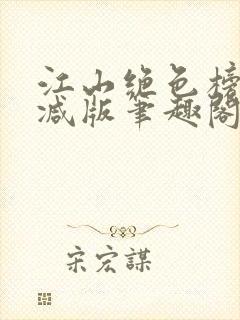 江山绝色榜
减版笔趣阁
宋宏謀